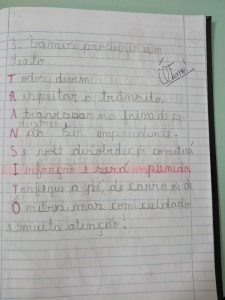 3. Vamos produzir um
texto.
Ótimo!
Todos devem
Respeitar o trânsito,
Atravessar na faixa de pe
destres
Não ser imprudente.
Se você desobedecer cometerá
Infração e será punido.
Trafegue a pé, de carro ou de
Ônibus, mas com cuidado
e muita atenção!